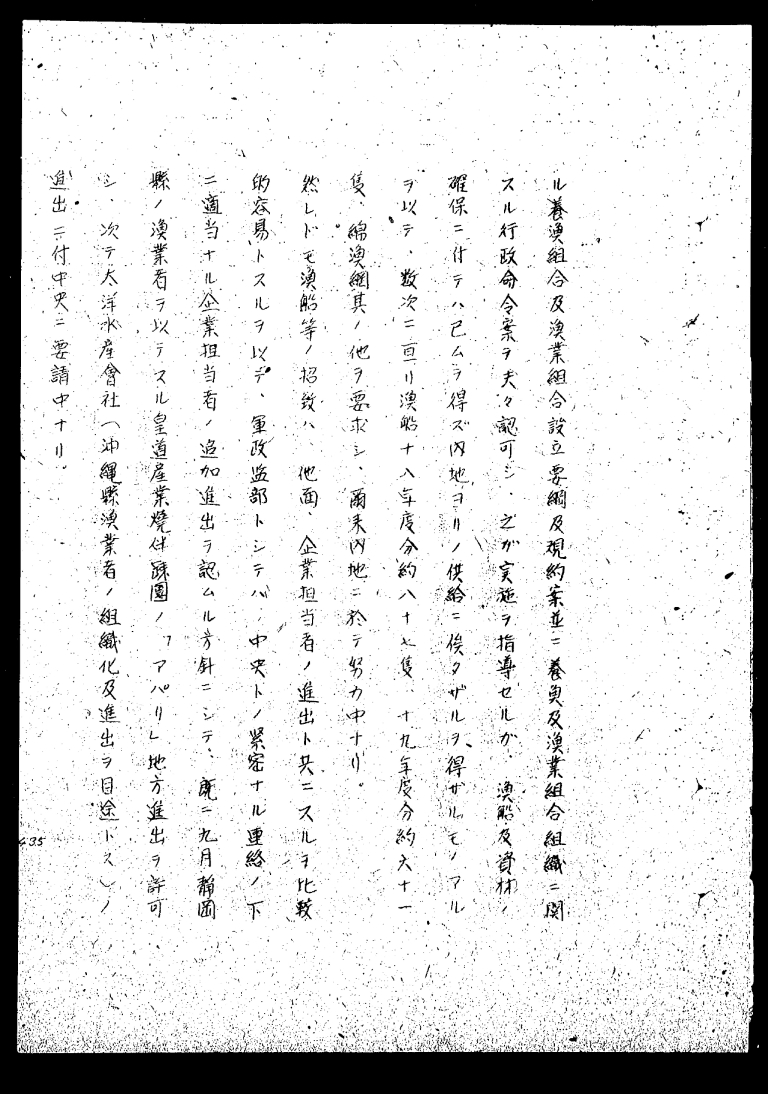 ル養漁組合及漁業組合設立要綱及規約案並ニ養魚及漁業組合組織ニ関
スル行政命令案ヲ夫々認可シ、之ガ実施ヲ指導セルガ、漁船及資材ノ
確保ニ付テハ已ムヲ得ズ内地ヨリノ供給ニ俟タザルヲ得ザルモノアル
ヲ以テ、数次ニ亘リ漁船十八年度分約八十七隻、十九年度分約六十一
隻、綿漁網其ノ他ヲ要求シ、爾来内地ニ於テ努力中ナリ。
然レドモ漁船等ノ招致ハ、他面、企業担当者ノ進出ト共ニスルヲ比較
的容易トスルヲ以テ、軍政監部トシテハ、中央トノ緊密ナル連絡ノ下
ニ適当ナル企業担当者ノ追加進出ヲ認ムル方針ニシテ、既ニ九月静岡
縣ノ漁業者ヲ以テスル皇道産業焼津踐團ノ「アパリ」地方進出ヲ許可
シ、次テ太洋水産會社(沖縄縣漁業者ノ組織化及進出ヲ目途トス)ノ
進出ニ付中央ニ要請中ナリ。
435